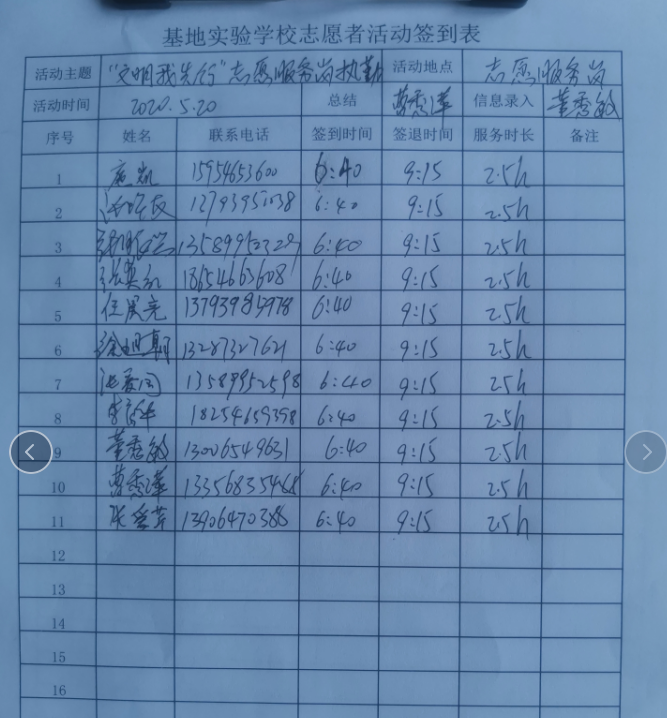 基地实验学校志愿者活动签到表
活动主题 "文明我先行"志愿服务岗执勤 活动地点 志愿服务岗
活动时间 2020.5.20 总结 信息录入 董秀敏
序号 姓名 联系电话 签到时间 签退时间 服务时长 备注
1 15954653600 6:40 9:15 2.5h
2 6:40 9:15 2.5h
3 6:40 9:15 2.5h
4 18654663608 6:40 9:15 2.5h
5 6:40 9:15 2.5h
6 13287327621 6:40 9:15 2.5h
7 13589952598 6:40 9:15 2.5h
8 18254659398 6:40 9:15 2.5h
9 董秀敏 13006549631 6:40 9:15 2.5h
10 13356835468 6:40 9:15 2.5h
11 13906470388 6:40 9:15 2.5h
12
13
14
15
16